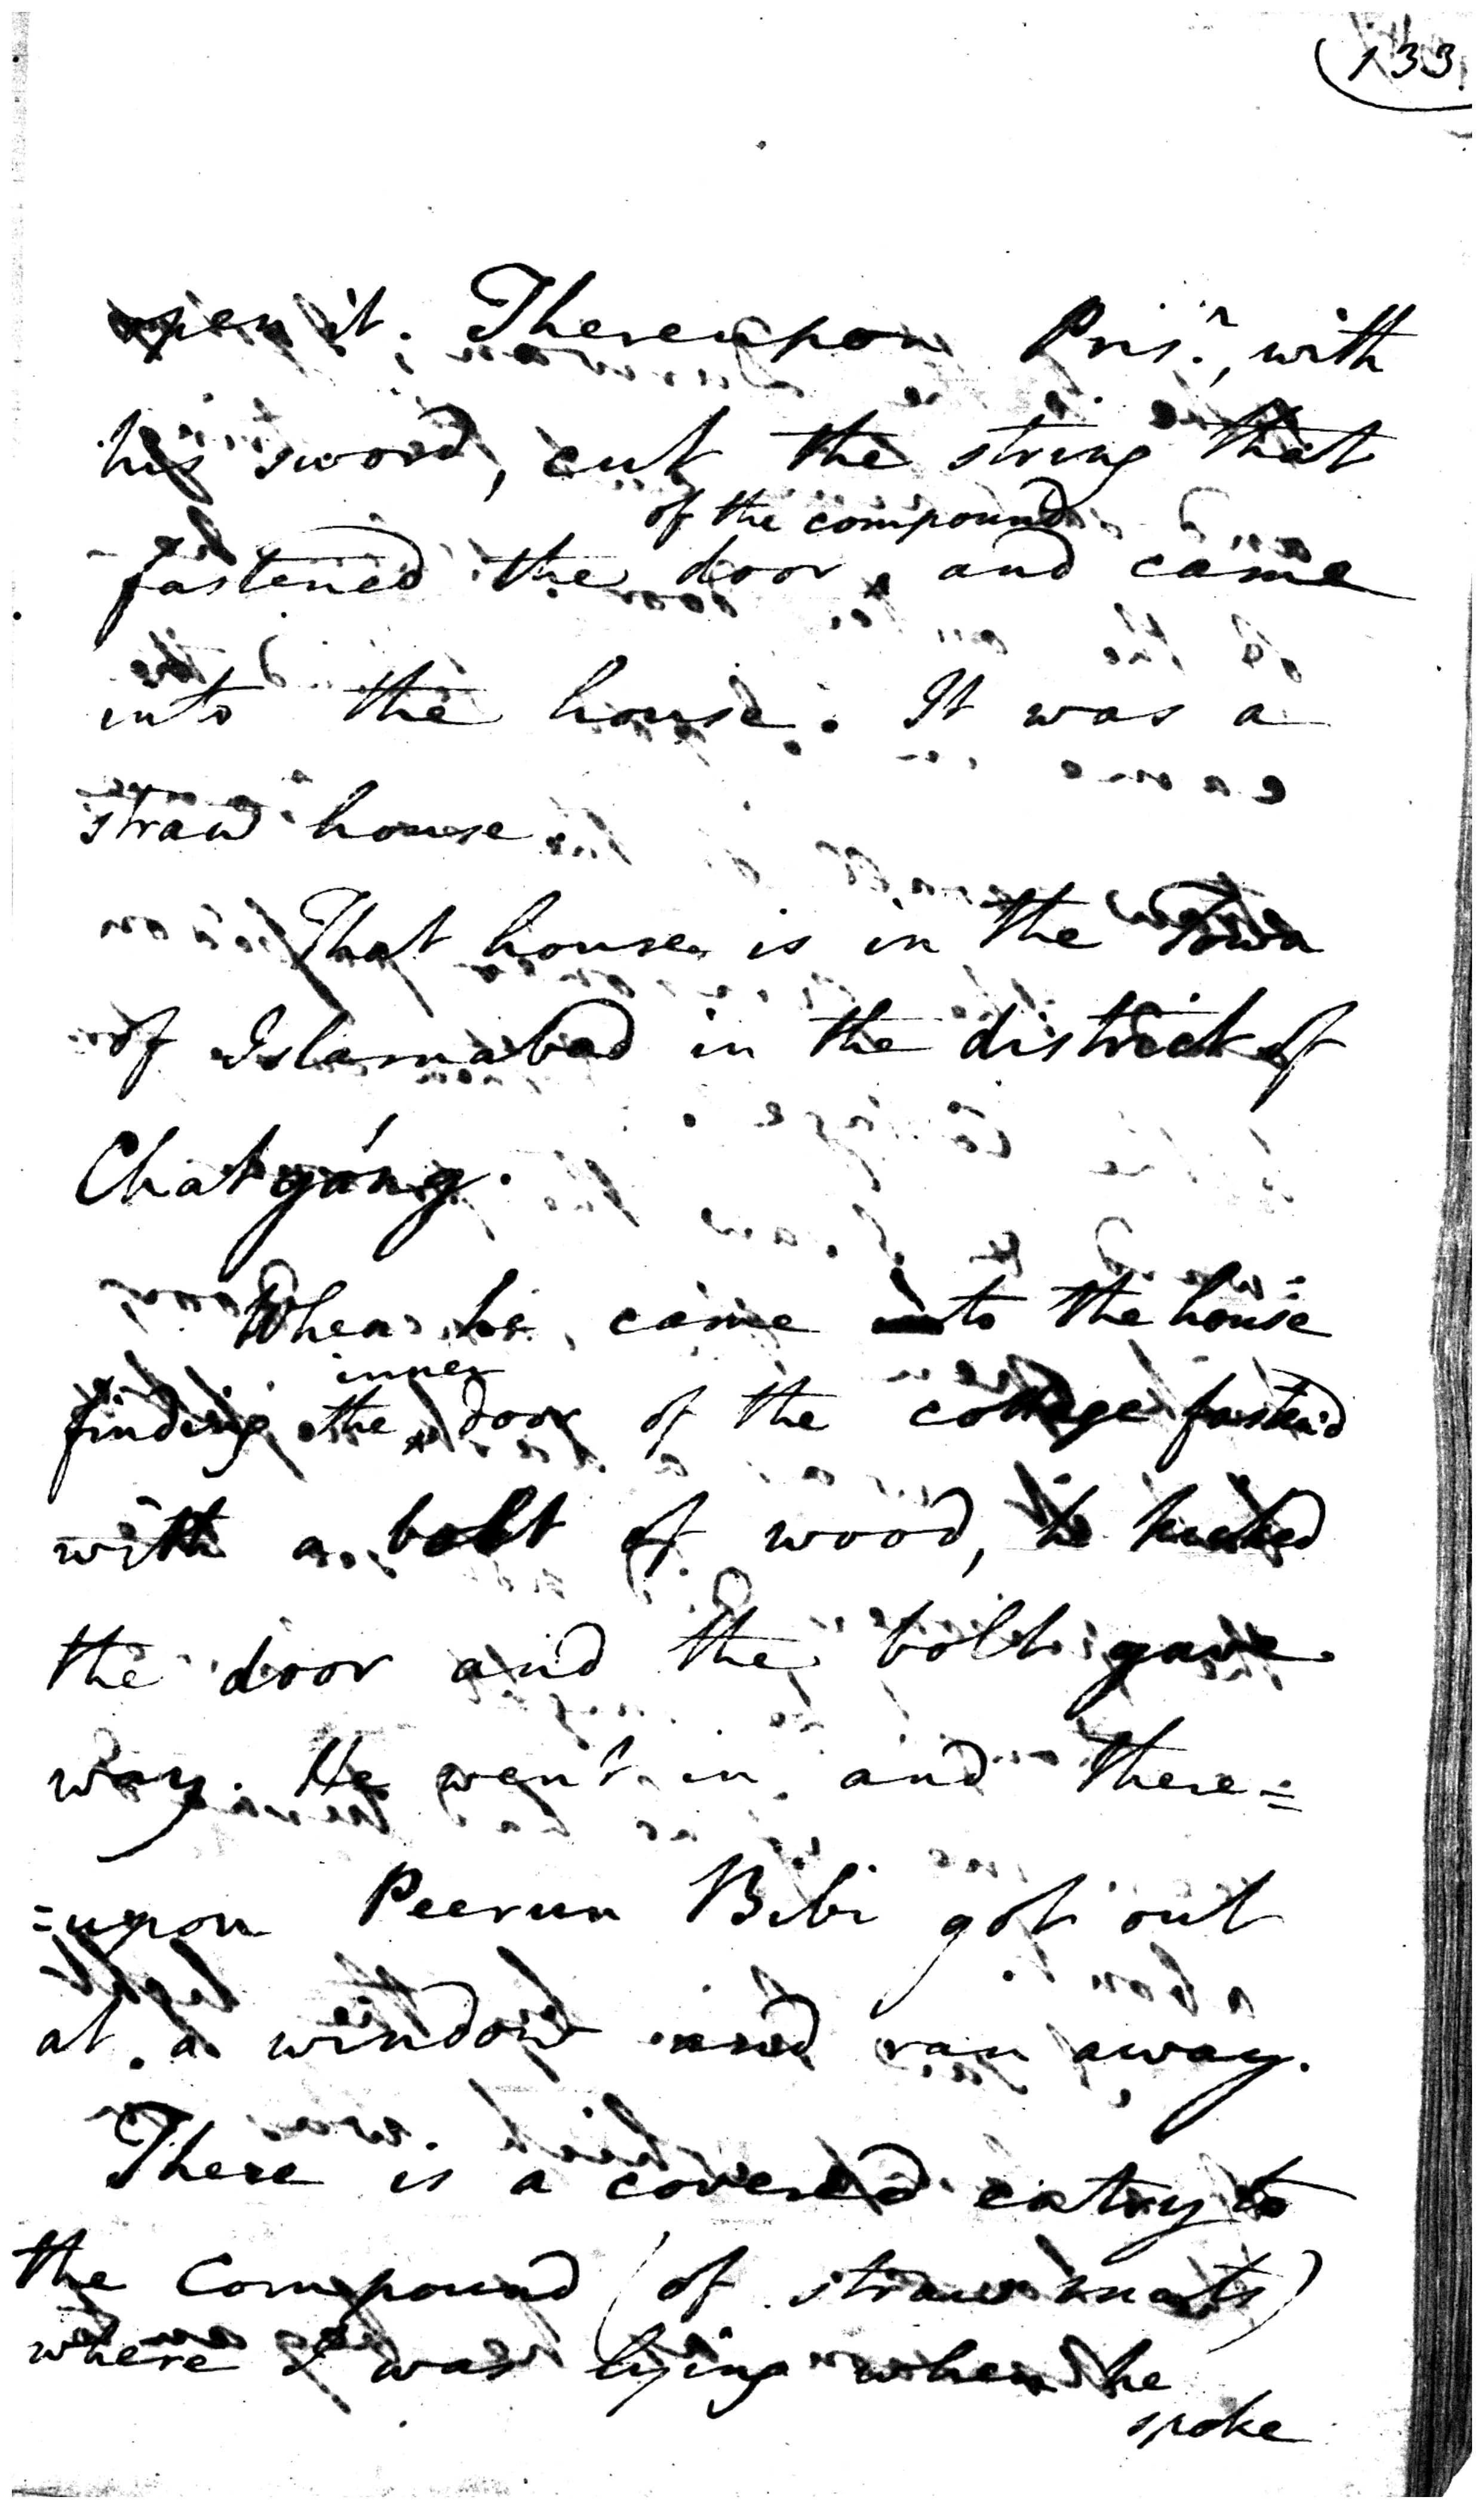 133.
open it. Thereupon Pris.r, with
his sword, cut the string that
of the compound
fastened the door, and came
into the house. It was a
straw house.
That house is in the Town
of Islamabad in the district of
Chatgáng.
When he came into the house
inner
finding the door of the cottage fasten'd
with a bolt of wood, he kicked
the door and the bolt gave
way. He went in and there=
=upon Peerun Bibi got out
at a window and ran away.
There is a covered entry to
the Compound (of straw mats)
where I was lying when he
spoke